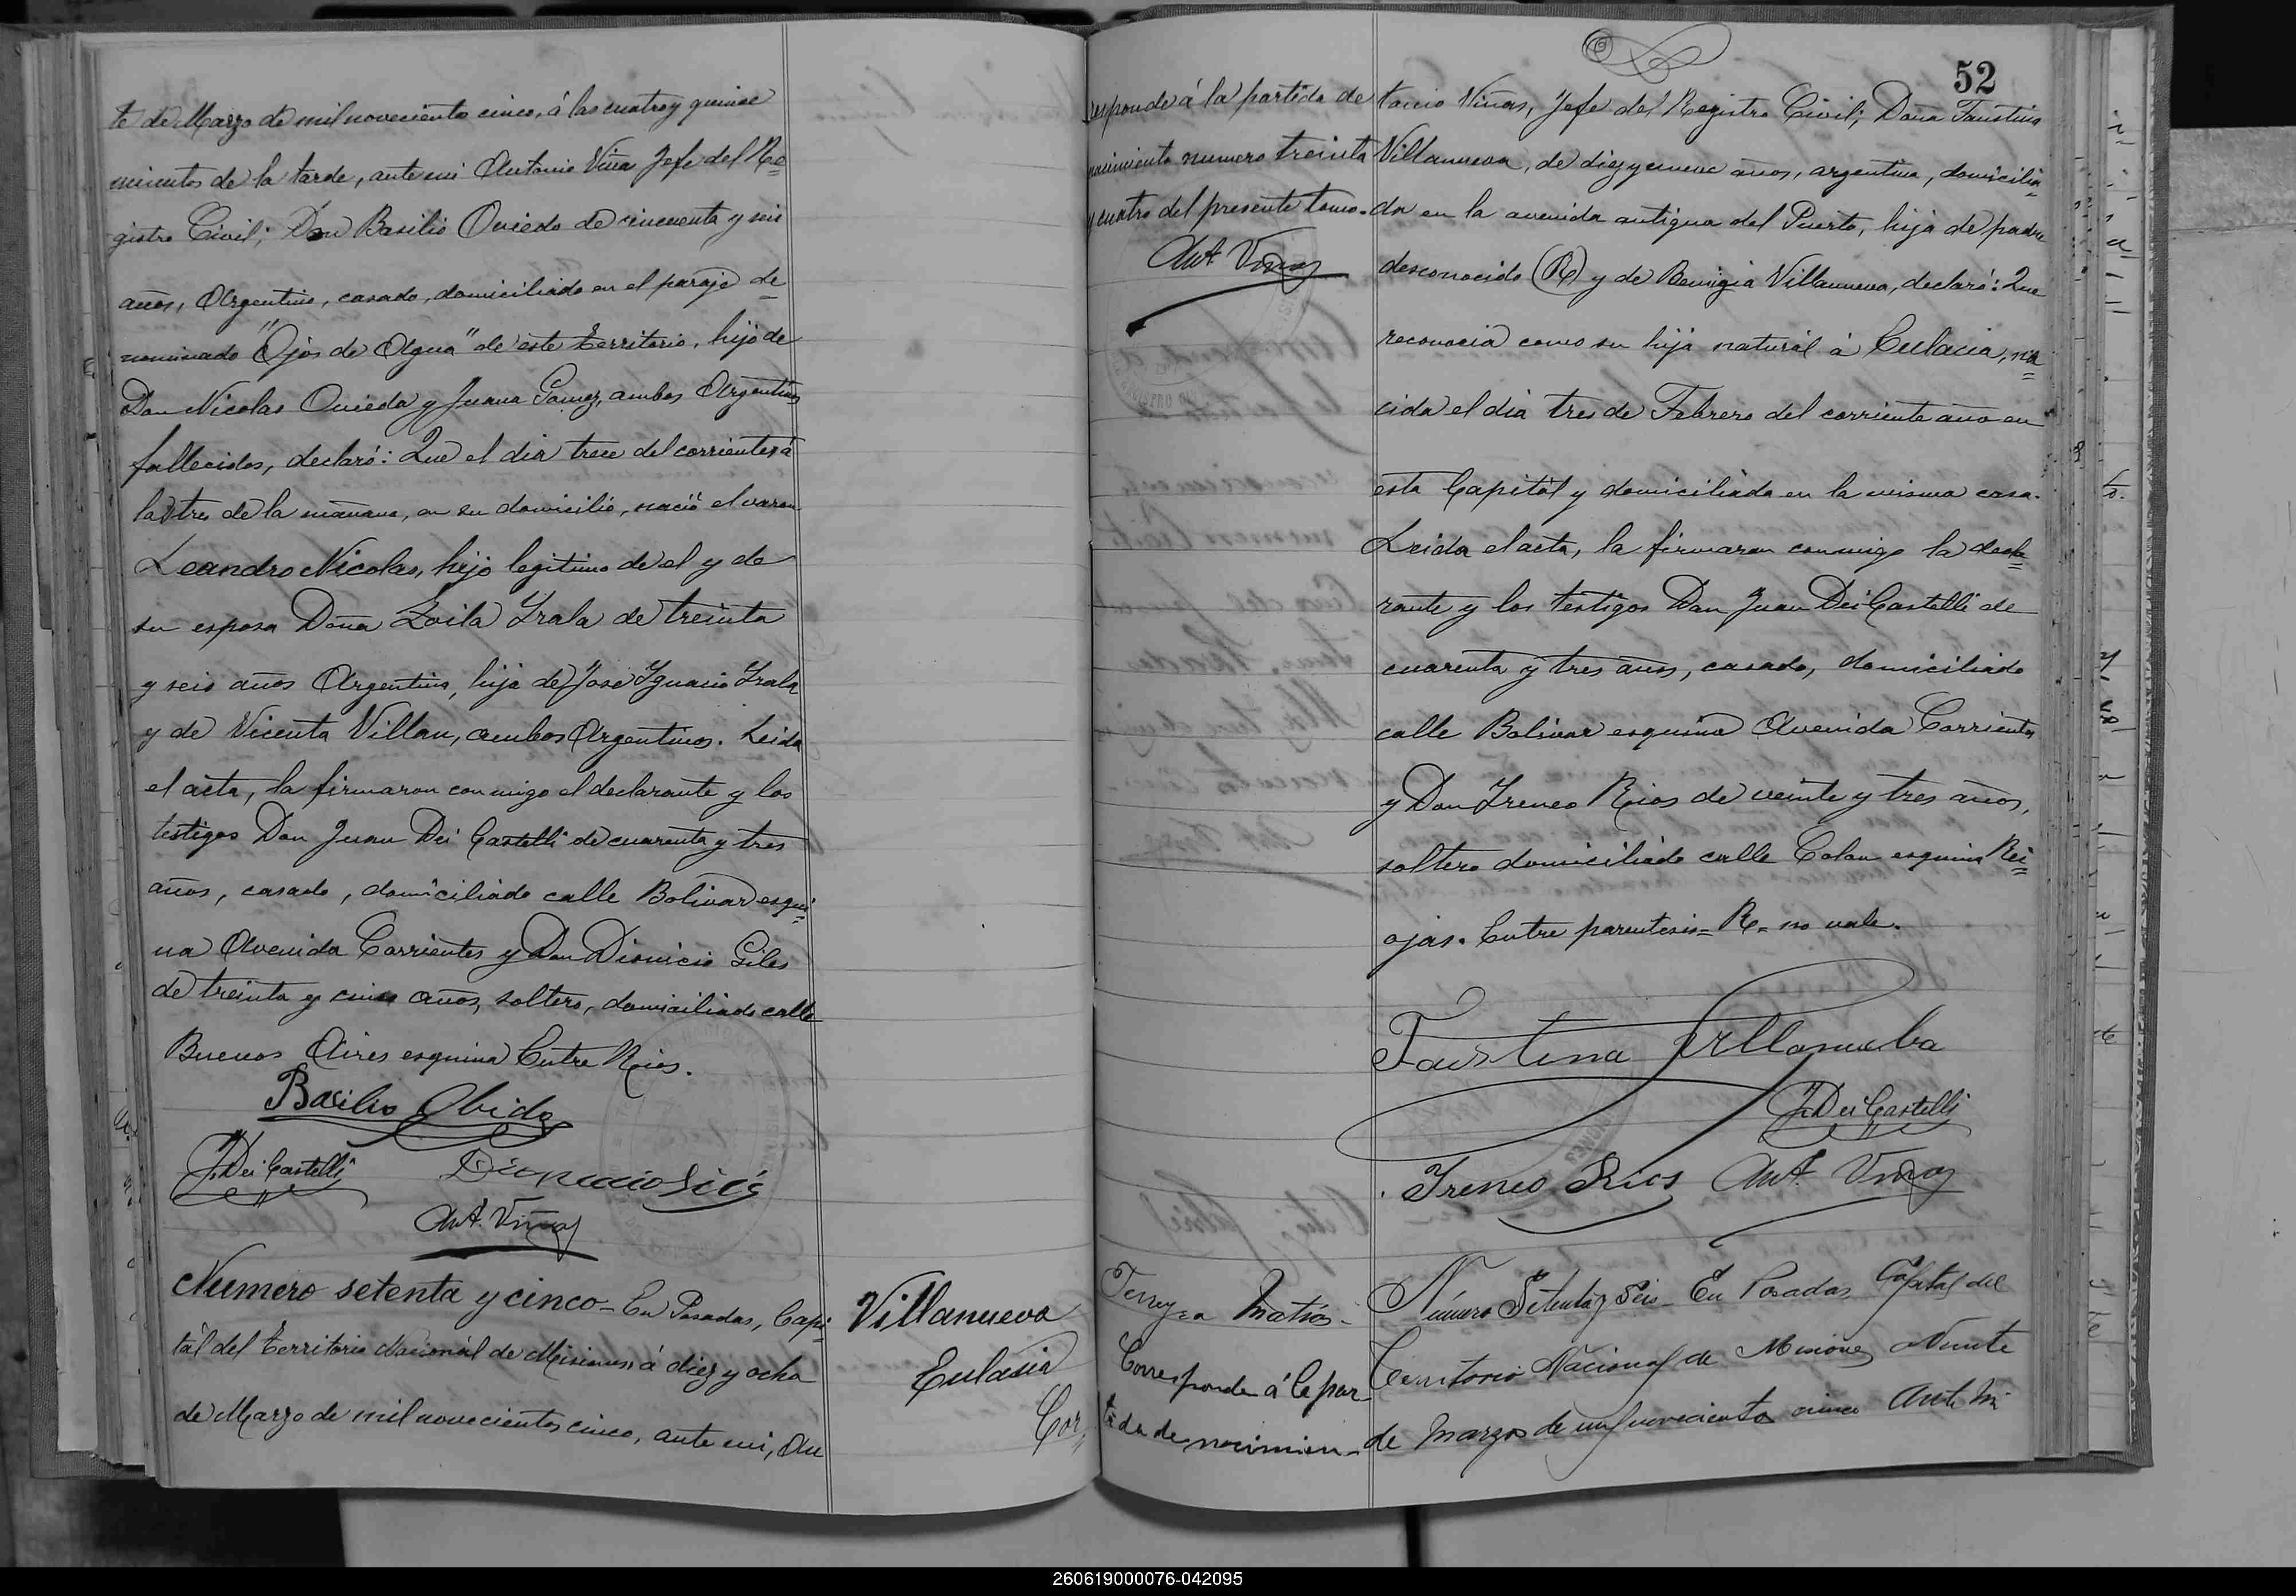 te de Marzo de mil novecientos cinco, á las cuatro y quince
minutos de la tarde, ante mi Antonio Viña Jefe del Re=
gistro Civil; Don Basilio Oviedo de cincuenta y seis
años, Argentino, casado, domiciliado en el paraje de=
nominado "Ojos de Agua" de este Territorio, hijo de
Don Nicolas Oviedo y Juana Gomez, ambos Argentinos
fallecidos, declaró: Que el dia trece del corriente á
las tres de la mañana, en su domicilio, nació el varon
Leandro Nicolas, hijo legitimo de el y de
su esposa Doña Zoila Irala de treinta
y seis años Argentina, hija de José Ygnacio Irala
y de Vicenta Villan, ambos Argentinos. Leida
el acta, la firmaron conmigo el declarante y los
testigos Don Juan Dei Castelli de cuarenta y tres
años, casado, domiciliado calle Bolivar esqui=
na Avenida Corrientes y Don Dionicio Giles
de treinta y cinco años, soltero, domiciliado calle
Buenos Aires esquina Entre Rios.
Basilio Obido
J. Dei Castelli
Ant. Viñas
Numero setenta y cinco= En Posadas, Capi=
tál del Territorio Nacionál de Misiones á diez y ocho
de Marzo de mil novecientos cinco, ante mi, An
Villanueva
Eulasia
Cor=
52
responde á la partida de
nacimiento numero treinta
y cuatro del presente tomo.
Ant. Viñas
tonio Viñas, Jefe del Registro Civil; Doña Faustina
Villanueva, de diez y nueve años, argentina, domicilia=
da en la avenida antigua del Puerto, hija de padre
desconocido (R) y de Benigia Villanueva, declaró: Que
reconocia como su hija natural á Eulacia, na=
cida el dia tres de Febrero del corriente año en
esta Capitál y domiciliada en la misma casa.
Leida el acta, la firmaron conmigo la decla=
rante y los testigos Don Juan Dei Castelli de
cuarenta y tres años, casado, domiciliado
calle Bolivar esquina Avenida Corrientes
y Don Ireneo Rios de veinte y tres años,
soltero domiciliado calle Colon esquina Ri=
ojas. Entre parentesis= R= no vale.
Faustina Villanueba
J. Dei Castelli
Ireneo Rios Ant. Viñas
Matias
Corresponde á la par-
tida de nacimien-
Número Setenta y Seis- En Posadas Capital del
Territorio Nacional de Misiones a Veinte
de Marzo de mil novecientos cinco Ante Mi
260619000076-042095